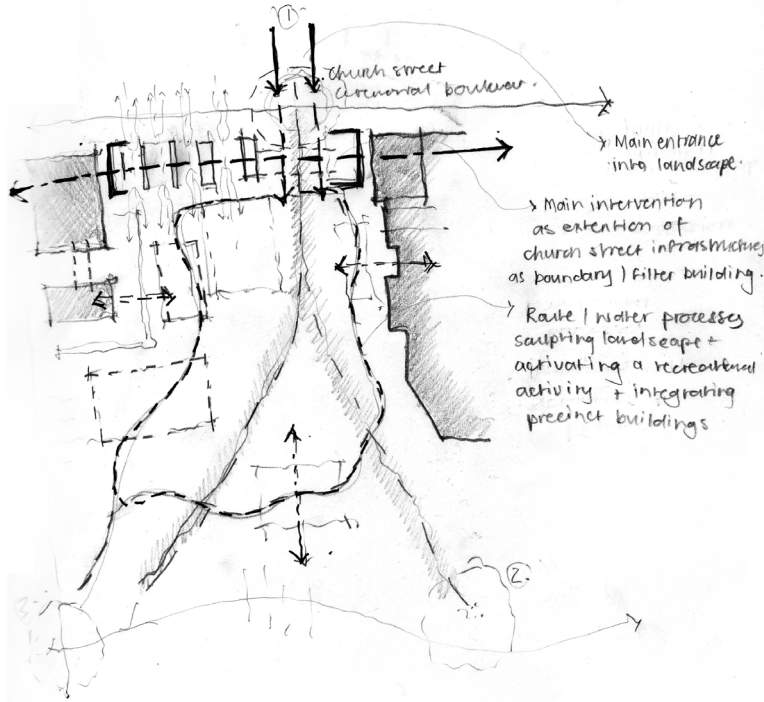 1
church street
ceremonial boulevar.
Main entrance
into landscape.
Main intervention
as extention of
church street infrastructure
as boundary / filter building.
Route / water processes
sculpting landscape +
activating a recreational
activity + integrating
precinct buildings
2.
3